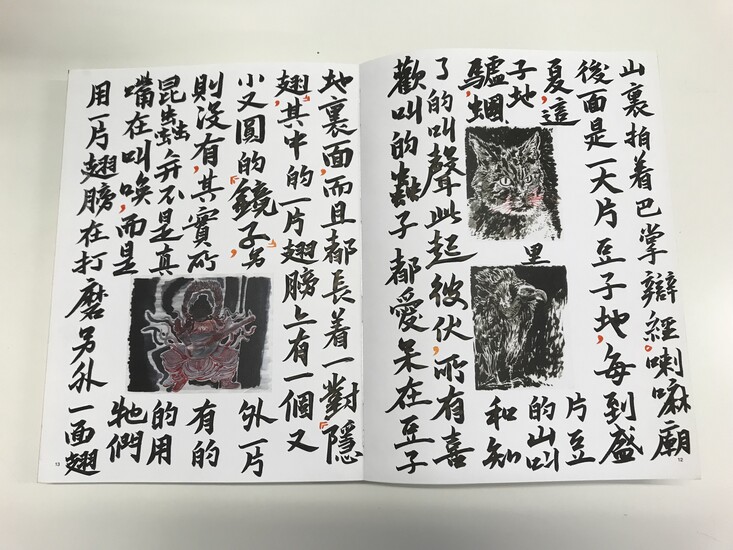 山裏拍着巴掌辯經。喇嘛廟
後面是一大片豆子地，每到盛
夏，這片豆
子地里的山叫
驢，蟈和知
了的叫聲此起彼伏，所有喜
歡叫的蟲子都愛呆在豆子
12
地裏面，而且都長着一對『隱
翅』，其中的一片翅膀上有一個又
小又圓的『鏡子』，另外一片
則没有，其實所有的
昆蟲并不是真的用
嘴在叫唤，而是牠們
用一片翅膀在打磨另外一面翅
13